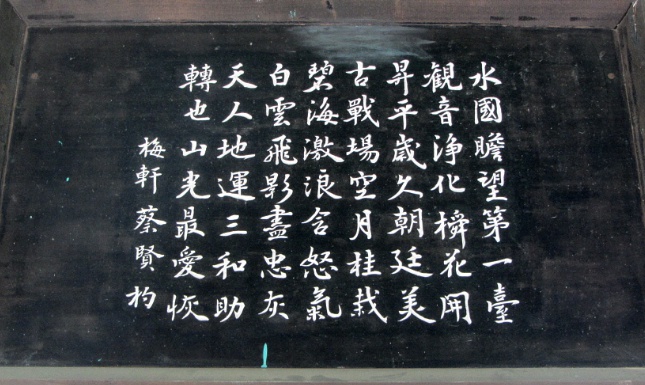 水國瞻望第一臺
観音淨化橓花開
昇平歲久朝廷美
古戰場空月桂栽
碧海激浪含怒氣
白雲飛影盡忠灰
天人地運三和助
轉也山光最愛恢
梅軒蔡賢杓